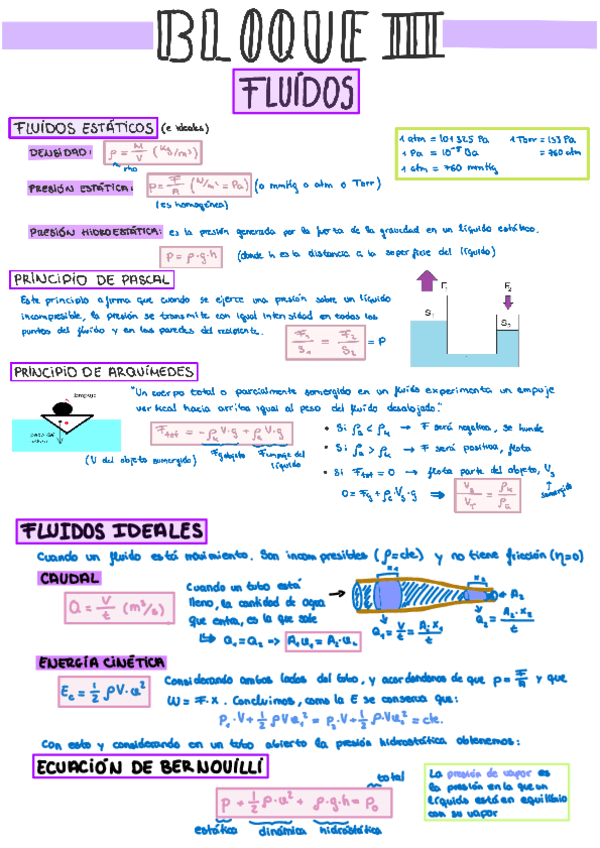 BLOQUE III
FLUÍDOS
FLUÍDOS ESTÁTICOS (e ideales)
DENSIDAD: ρ = M/V (Kg/m³)
rho
1 atm = 101325 Pa 1 Torr = 133 Pa
1 Pa = 10⁻⁵ Ba = 760 atm
1 atm = 760 mmHg
PRESIÓN ESTÁTICA: P = F/A (N/m² = Pa) (o mmHg o atm o Torr)
(es homogénea)
PRESIÓN HIDROESTÁTICA: es la presión generada por la fuerza de la gravedad en un líquido estático.
P = ρ·g·h (donde h es la distancia a la superficie del líquido)
PRINCIPIO DE PASCAL
Este principio afirma que cuando se ejerce una presión sobre un líquido
incompresible, la presión se transmite con igual intensidad en todos los
puntos del fluido y en las paredes del recipiente.
F₁/S₁ = F₂/S₂ = P
F₁ F₂
S₁ S₂
PRINCIPIO DE ARQUÍMEDES
"Un cuerpo total o parcialmente sumergido en un fluido experimenta un empuje
vertical hacia arriba igual al peso del fluido desalojado."
empuje
peso del
(V del objeto sumergido)
F objeto F empuje del
líquido
→ F será negativa, se hunde
→ F será positiva, flota
• Si Ftot = 0 → flota parte del objeto, Vs
sumergido
FLUIDOS IDEALES
Cuando un fluido está movimiento. Son incompresibles (ρ=cte) y no tiene fricción (η=0)
CAUDAL
Q = V/t (m³/s)
Cuando un tubo está
lleno, la cantidad de agua
que entra, es la que sale
↳ Q₁ = Q₂ => A₁u₁ = A₂·u₂
x₁ x₂
A₂
Q₁ = V/t = A₁·x₁/t
Q₂ = A₂·x₂/t
ENERGÍA CINÉTICA
Ec = 1/2 ρV·u²
Considerando ambos lados del tubo, y acordándonos de que P = F/A y que
W = F·x. Concluimos, como la E se conserva que:
P₁·V + 1/2 ρVu₁² = P₂·V + 1/2 ρ·Vu₂² = cte.
Con esto y considerando en un tubo abierto la presión hidrostática obtenemos:
ECUACIÓN DE BERNOUILLI
total
P + 1/2 ρ·u² + ρ·g·h = P₀
estática dinámica hidrostática
La presión de vapor es
la presión en la que un
líquido está en equilibrio
con su vapor